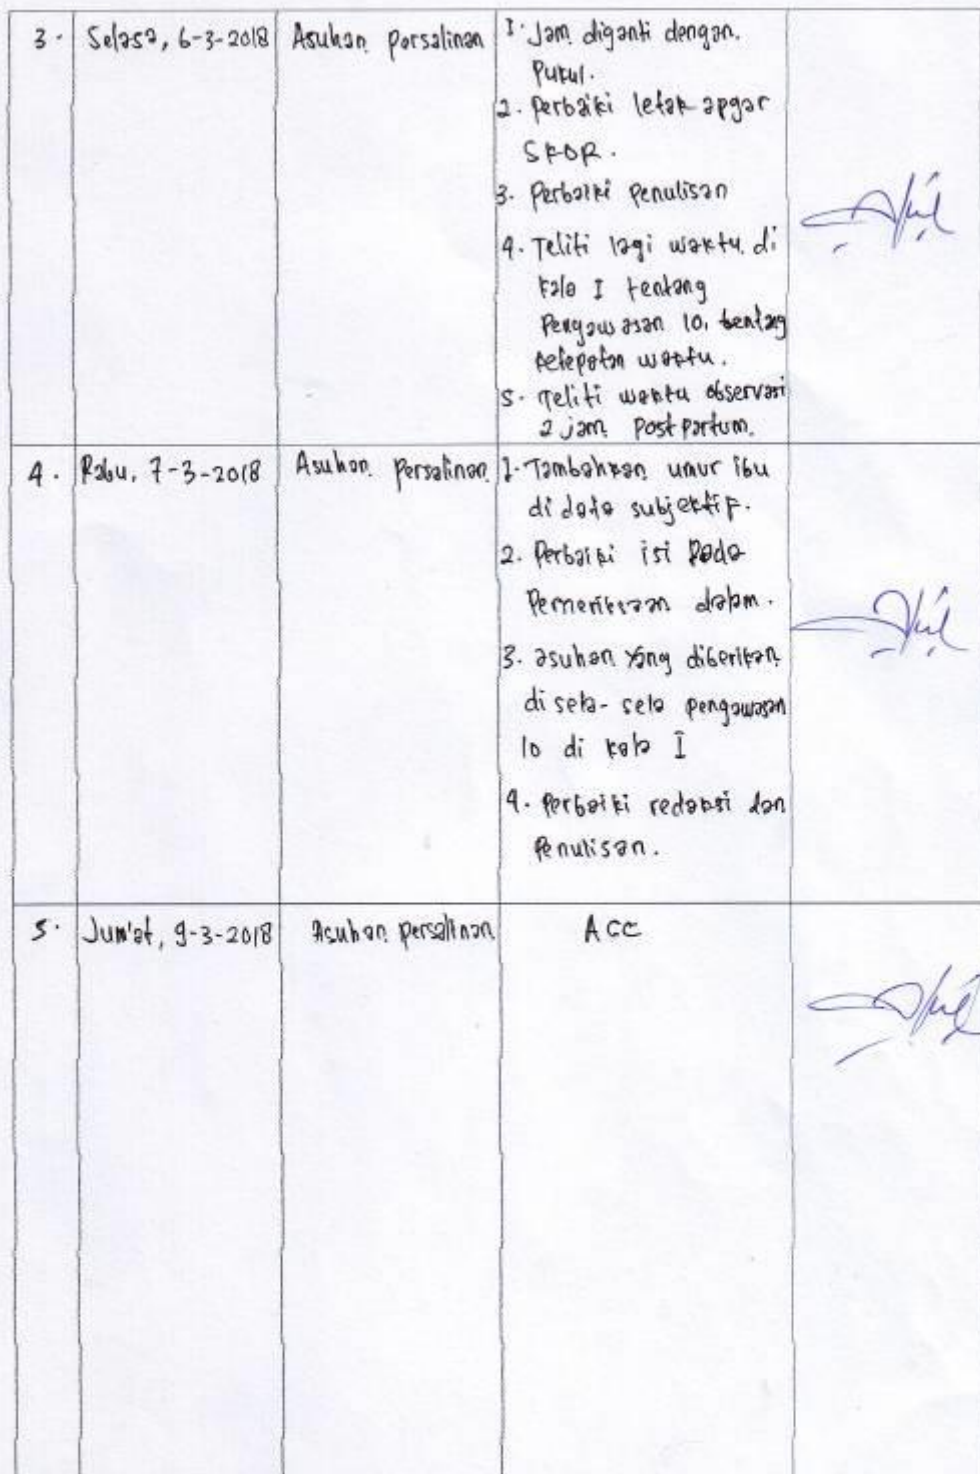 3. Selasa, 6-3-2018 Asuhan persalinan 1. Jam diganti dengan.
Pukul.
2. Perbaiki letak apgar
SKOR.
3. Perbaiki Penulisan
4. Teliti lagi waktu di
kala I tentang
Pengawasan 10, tentang
ketepatan waktu.
5. Teliti waktu observasi
2 jam Post partum.
4. Rabu, 7-3-2018 Asuhan persalinan 1. Tambahkan umur ibu
di data subjektif.
2. Perbaiki isi Pada
Pemeriksaan dalam.
3. asuhan yang diberikan
di sela-sela pengawasan
10 di kala I
4. Perbaiki redaksi dan
Penulisan.
5. Jum'at, 9-3-2018 Asuhan persalinan ACC